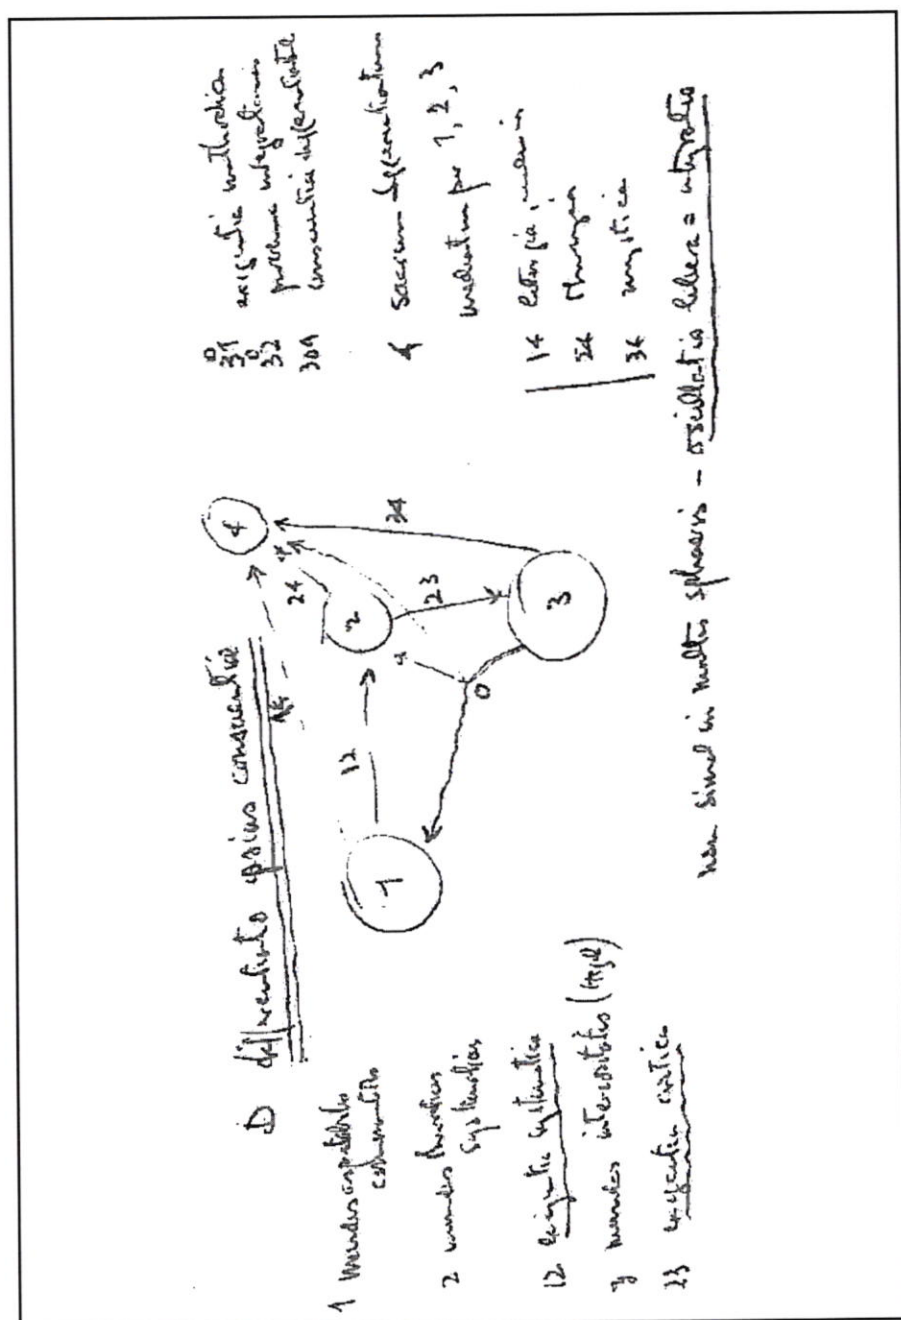 D differentiatio ipsius conscientiae
1 mundus aspectabilis
communitatis
2 mundus theoreticus
systematicus
12 exigentia systematica
3 mundus interioritatis (Hegel)
23 exigentia critica
1
12
2
23
3
0
14
24
34
4
301 exigentia methodica
302 problema integrationis
304 conscientiae differentiatae
4 sacrum differentiatum
mediatum per 1, 2, 3
14 liturgia
24
34 mystica
non simul in multis sphaeris - oscillatio libera = integratio